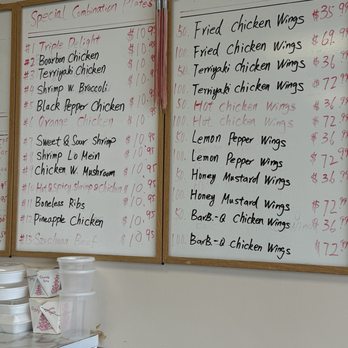 Special Combination Plates
#1 Triple Delight $10.95
#2 Bourbon Chicken $10.95
#3 Terriyaki Chicken $10.95
#4 Shrimp w. Broccoli $10.95
#5 Black Pepper Chicken $10.95
#6 Orange Chicken $10.95
Sweet & Sour Shrimp $10.95
Shrimp Lo Mein $10.95
Chicken W. Mushroom $10.95
Hot & Spicy Shrimp & Chicken $10.95
#11 Boneless Ribs $10.95
Pineapple Chicken $10.95
Szechuan Beef $10.95
50. Fried Chicken Wings $35
100. Fried Chicken Wings $69
50. Terriyaki Chicken Wings $36
100. Terriyaki Chicken Wings $72
50. Hot Chicken Wings $36
100. Hot Chicken Wings $72
50. Lemon Pepper Wings $36
100. Lemon Pepper Wings $72
50. Honey Mustard Wings $36
100. Honey Mustard Wings $72
50. BarB-Q Chicken Wings $36
100. BarB-Q Chicken Wings $72